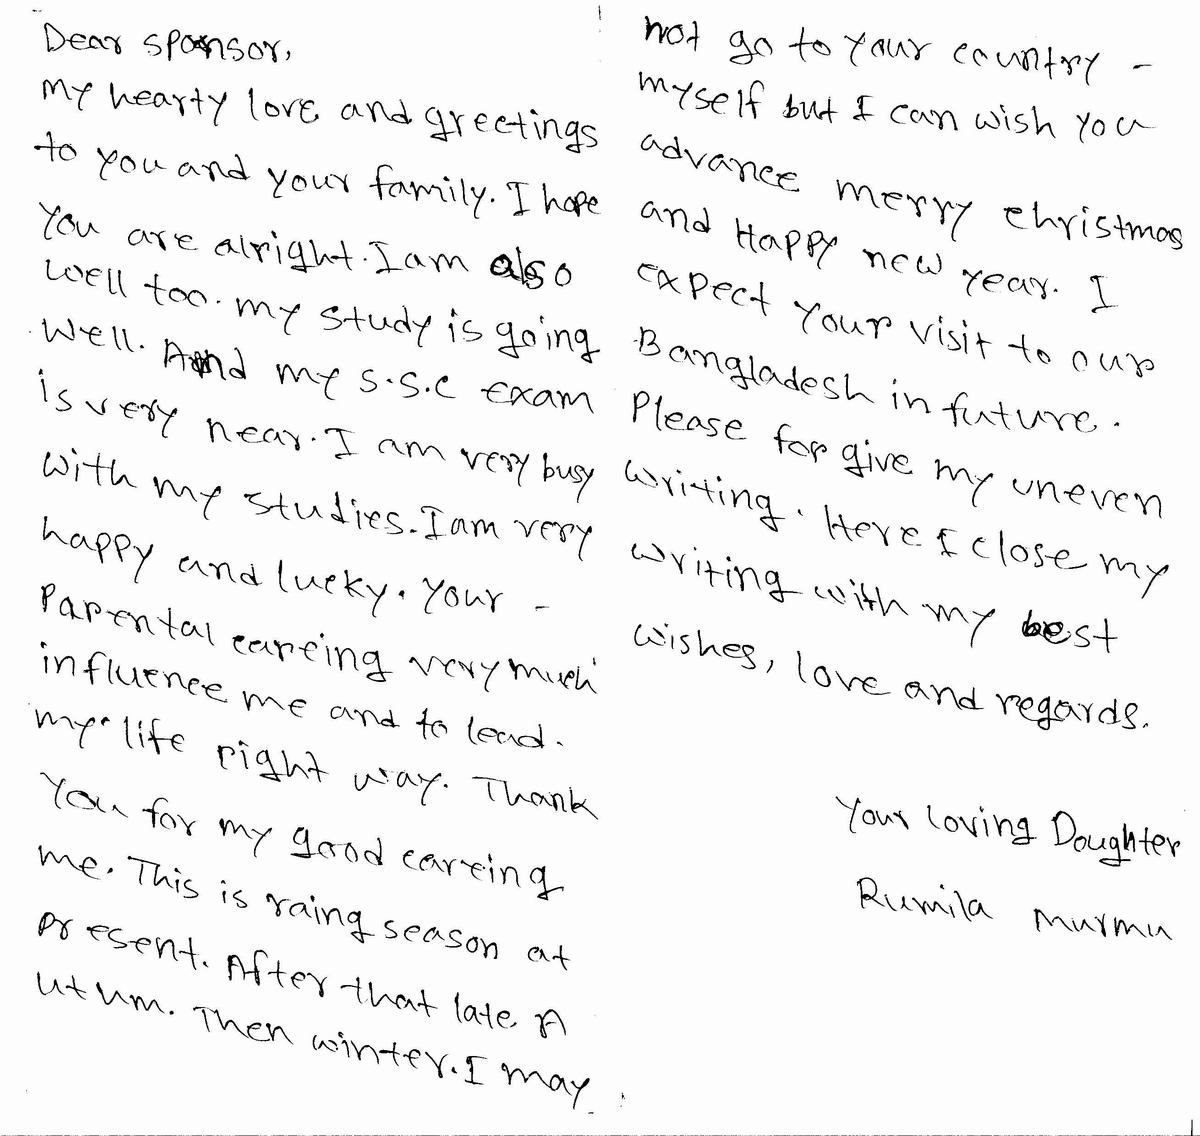 Dear sponsor,
My hearty love and greetings
to you and your family. I hope
you are alright. I am also
well too. my study is going
well. And my s.s.c exam
is very near. I am very busy
with my studies. I am very
happy and lucky. Your -
Parental careing very much
influence me and to lead.
my life right way. Thank
you for my good careing
me. This is raing season at
present. After that late A
utum. Then winter. I may
not go to your country -
myself but I can wish you
advance merry christmas
and Happy new year. I
expect your visit to our
Bangladesh in future.
Please for give my uneven
writing. Here I close my
writing with my best
wishes, love and regards.
Your loving Doughter
Rumila Murmu